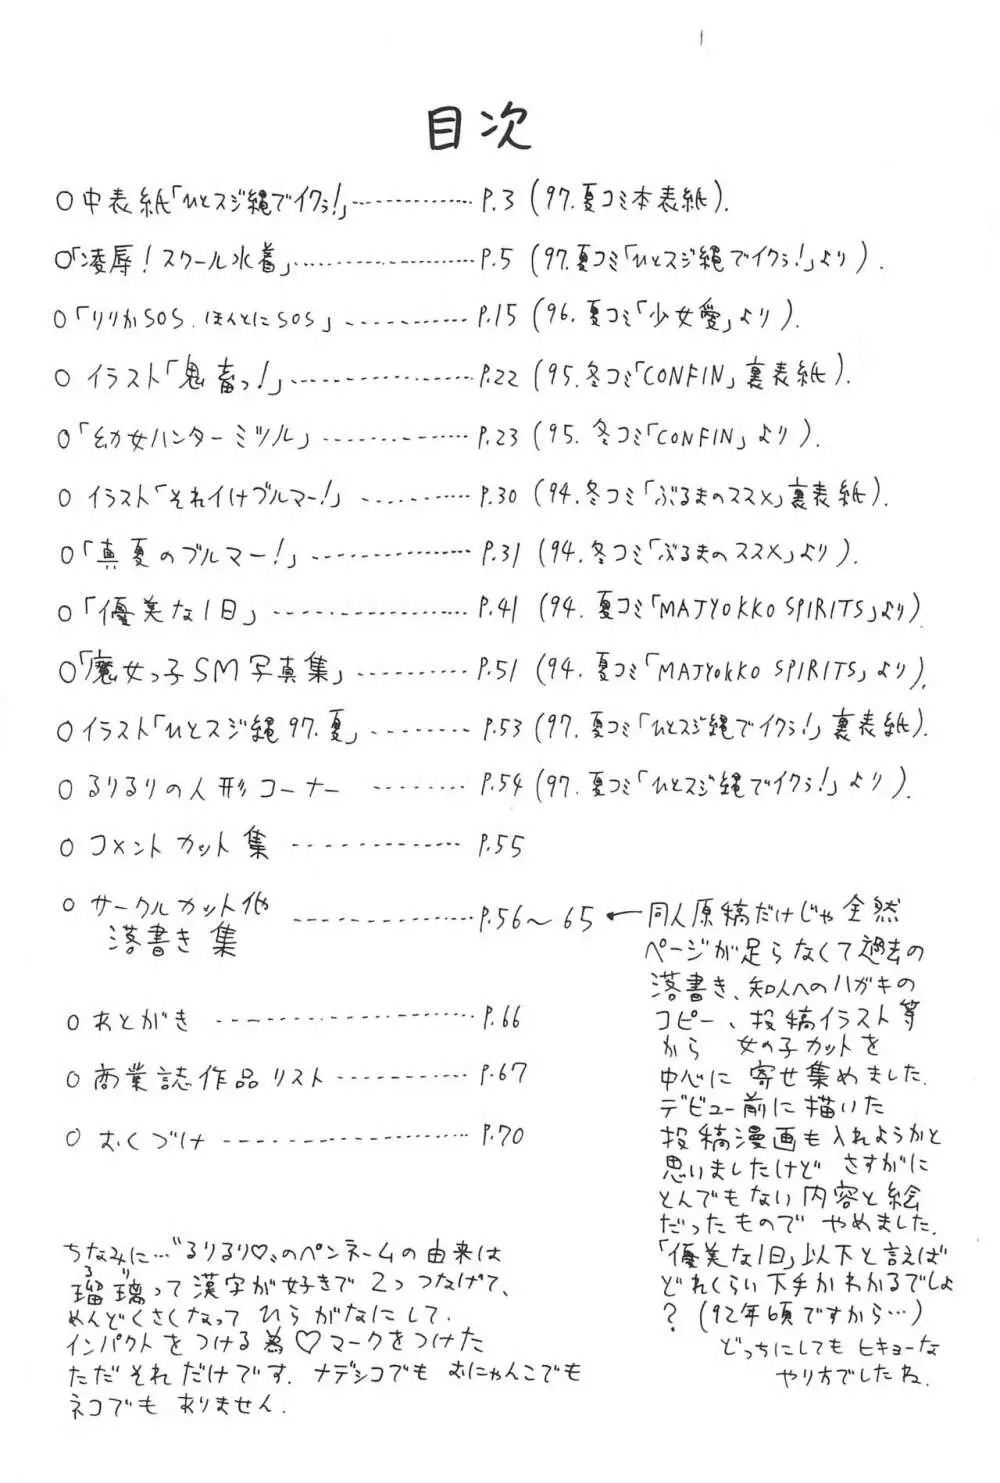 目次
○中表紙「ひとスジ縄でイクぅ!」 P.3 (97.夏コミ本表紙).
○「凌辱!スクール水着」 P.5 (97.夏コミ「ひとスジ縄でイクぅ!」より).
○「りりかSOS.ほんとにSOS」 P.15 (96.夏コミ「少女愛」より).
○ イラスト「鬼畜っ!」 P.22 (95.冬コミ「CONFIN」裏表紙).
○「幼女ハンターミツル」 P.23 (95.冬コミ「CONFIN」より).
○ イラスト「それイけブルマー!」 P.30 (94.冬コミ「ぶるまのススメ」裏表紙).
○「真夏のブルマー!」 P.31 (94.冬コミ「ぶるまのススメ」より).
○「優美な1日」 P.41 (94.夏コミ「MAJYOKKO SPIRITS」より)
○「魔女っ子SM写真集」 P.51 (94.夏コミ「MAJYOKKO SPIRITS」より).
○イラスト「ひとスジ縄97.夏」 P.53 (97.夏コミ「ひとスジ縄でイクぅ!」裏表紙).
○ るりるりの人形コーナー P.54 (97.夏コミ「ひとスジ縄でイクぅ!」より).
○ コメントカット集 P.55
○ サークルカット他
落書き集 P.56〜65
←同人原稿だけじゃ全然
ページが足らなくて過去の
落書き、知人へのハガキの
コピー、投稿イラスト等
から 女の子カットを
中心に寄せ集めました.
デビュー前に描いた
投稿漫画も入れようかと
思いましたけど さすがに
とんでもない内容と絵
だったもので やめました.
「優美な1日」以下と言えば
どれくらい下手かわかるでしょ
? (92年頃ですから…)
どっちにしても ヒキョーな
やり方でしたね.
○ あとがき P.66
○ 商業誌作品リスト P.67
○ おくづけ P.70
ちなみに…"るりるり♡"のペンネームの由来は
るり
瑠璃って漢字が好きで 2つつなげて、
めんどくさくなって ひらがなにして.
インパクトをつける為♡マークをつけた
ただそれだけです. ナデシコでも おにゃんこでも
ネコでも ありません.